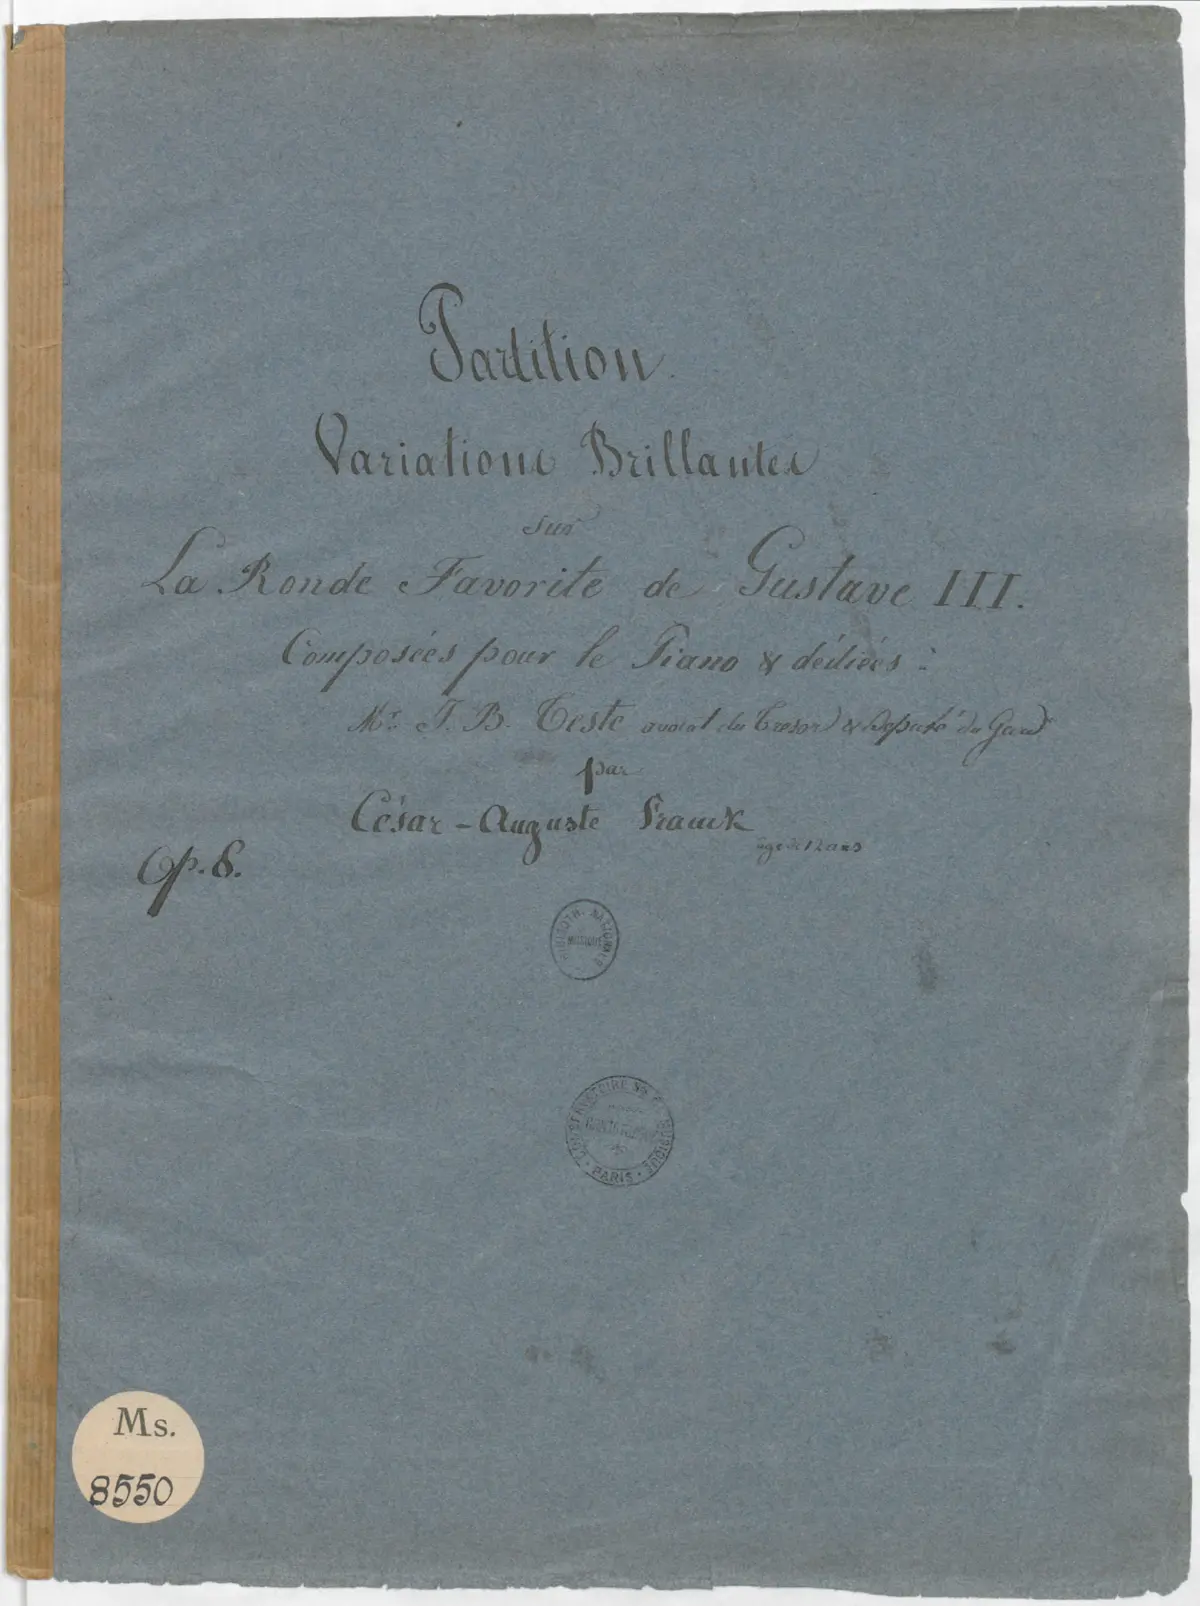 Partition
Variations Brillantes
sur
La Ronde Favorite de Gustave III.
Composées pour le Piano & dédiées :
Mr. J. B. Teste avocat du Tresor & Deputé du Gard
par
César-Auguste Franck
age de 12 ans
Op. 8.
BIBLIOTH. NATIONALE
MUSIQUE
CONSERVATOIRE
MUSIQUE
PARIS
Ms.
8550